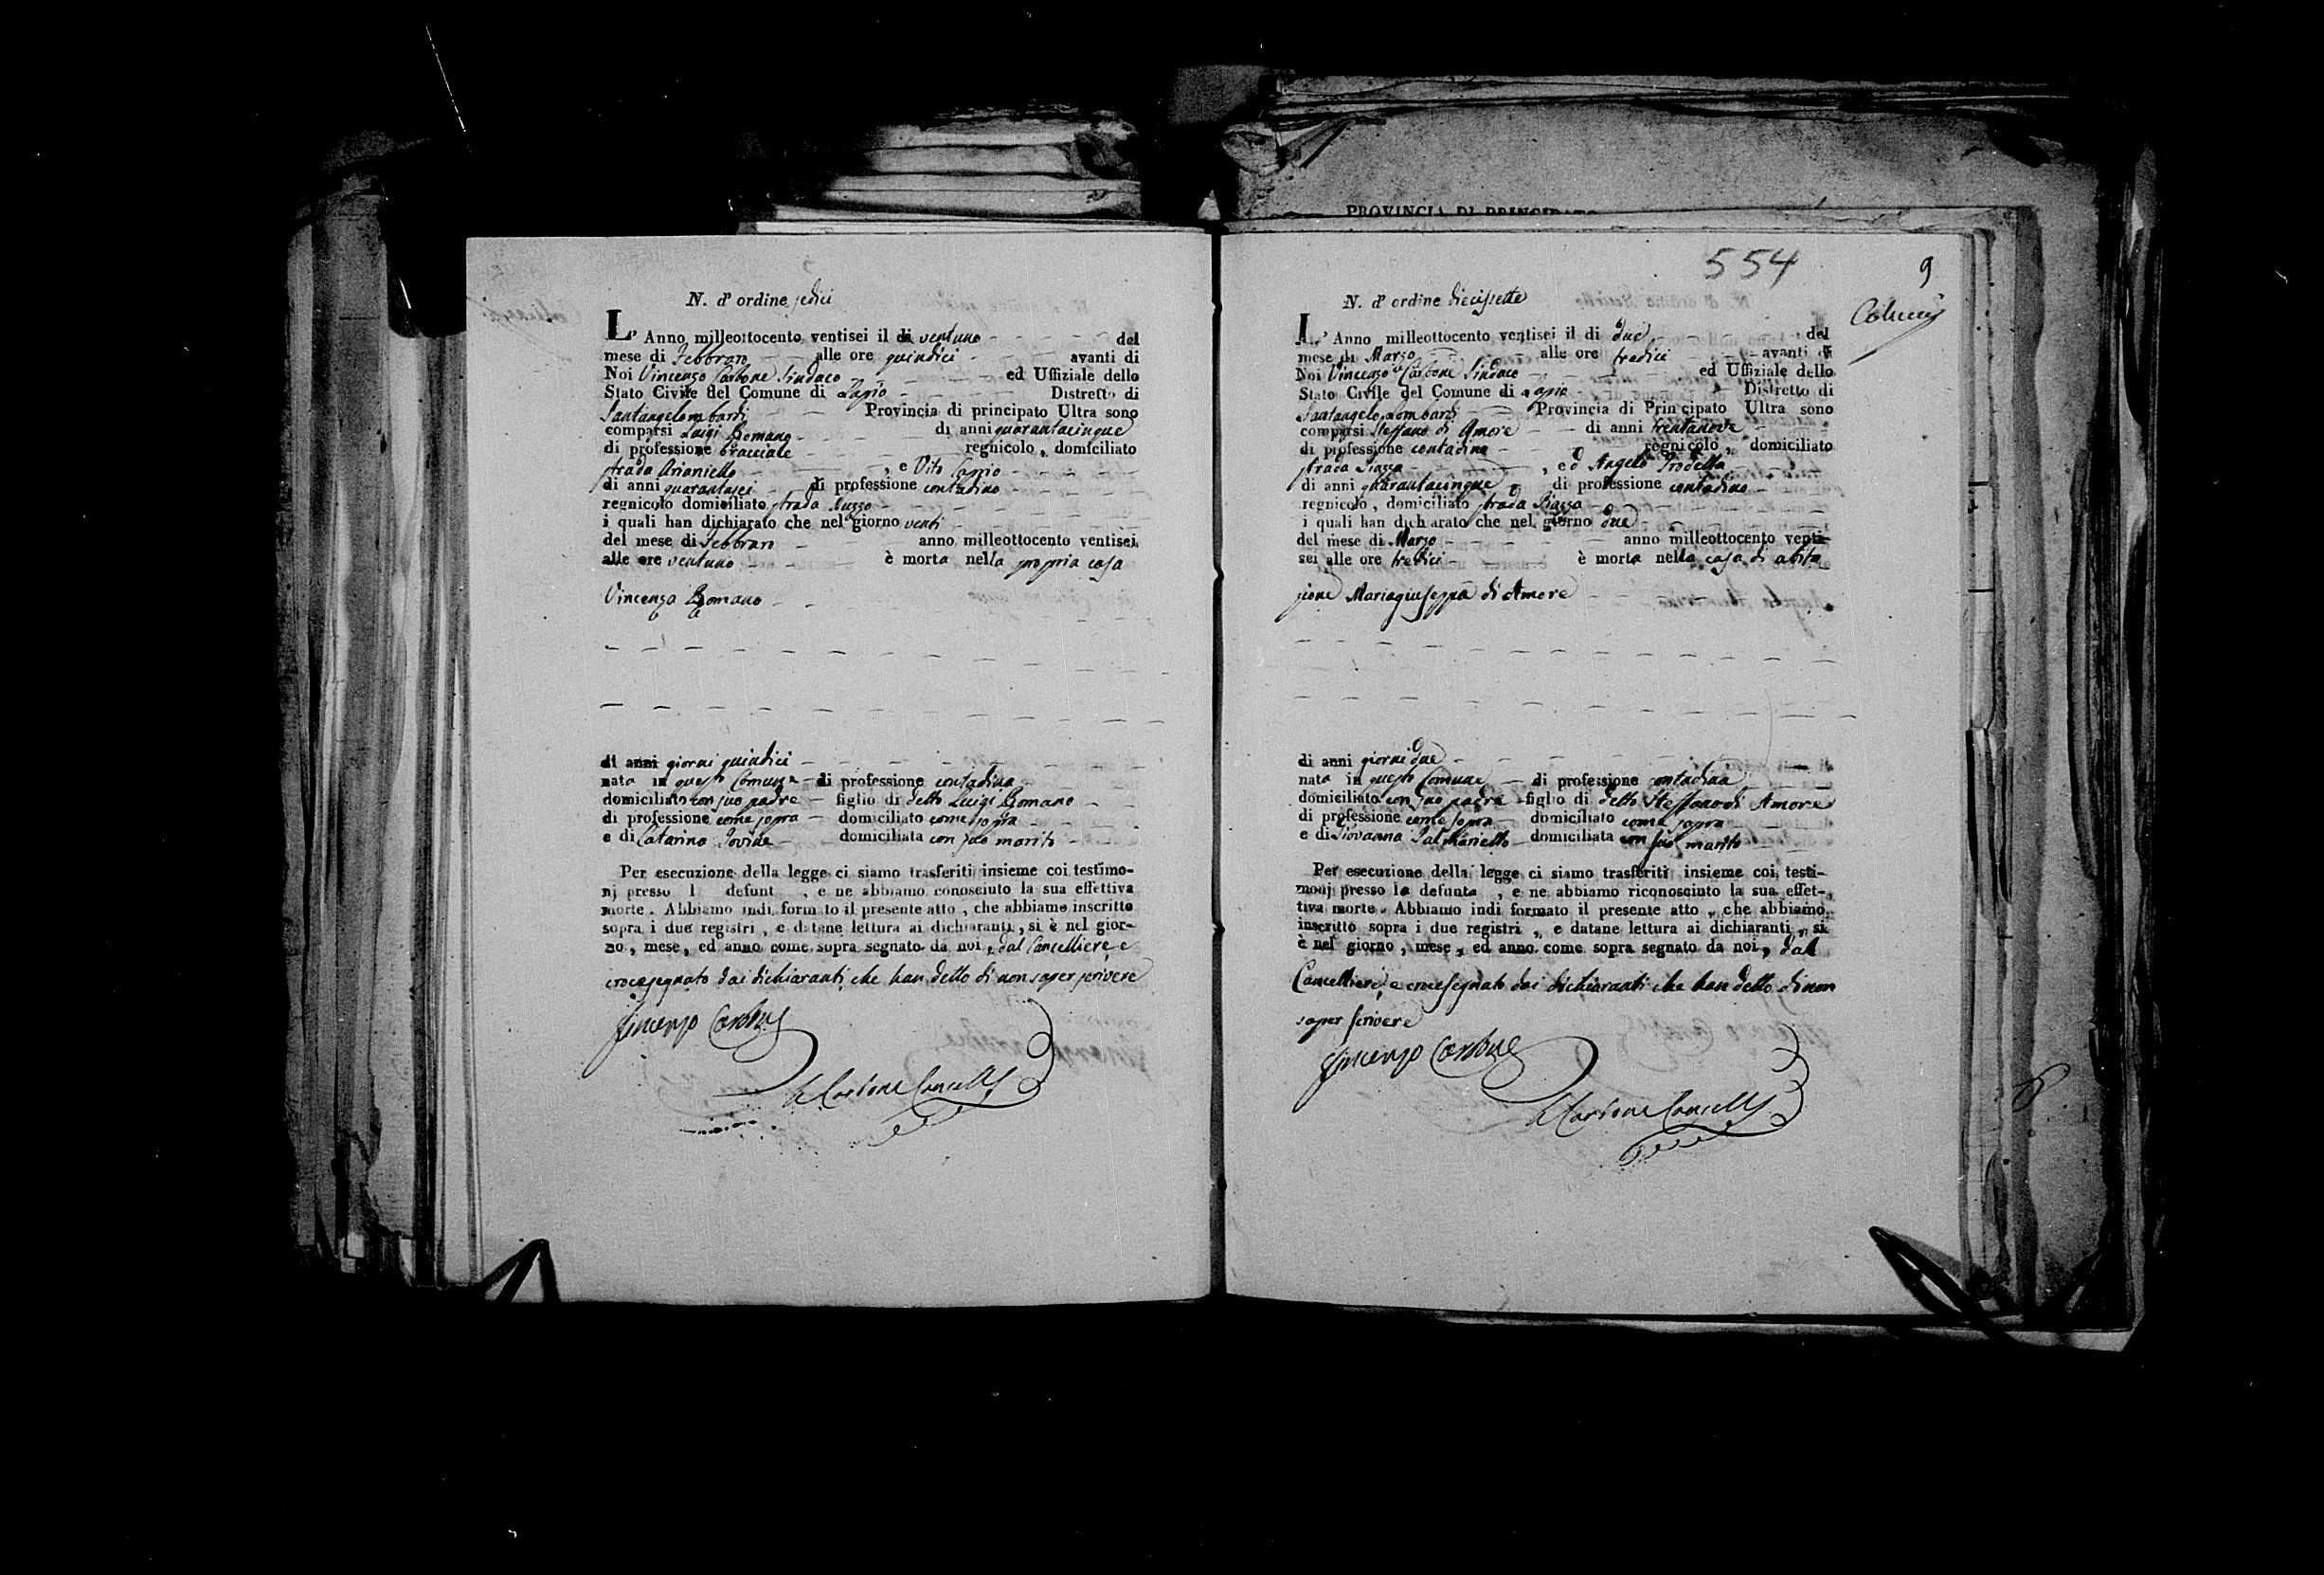 N. d' ordine sedici
L' Anno milleottocento ventisei il di ventuno del
mese di Febbraro alle ore quindici avanti di
Noi Vincenzo Carbone Sindaco ed Uffiziale dello
Stato Civile del Comune di Lapio Distretto di
Santangelombardi Provincia di principato Ultra sono
comparsi Luigi Romano di anni quarantacinque
di professione bracciale regnicolo, domiciliato
strada Arianiello, e Vito
di anni quarantasei di professione contadino
regnicolo domiciliato strada
i quali han dichiarato che nel giorno venti
del mese di Febbraro anno milleottocento ventisei
alle ore ventuno è morta nella propria casa
Vincenza Romano
di anni giorni quindici
nata in questo Comune di professione contadina
domiciliato con suo padre figlio di detto Luigi Romano
di professione come sopra domiciliato come sopra
e di Catarina Iovine domiciliata con suo marito
Per esecuzione della legge ci siamo trasferiti insieme coi testimo-
nj presso l defunt , e ne abbiamo conosciuto la sua effettiva
morte. Abbiamo indi formato il presente atto, che abbiamo inscritto
sopra i due registri, e datane lettura ai dichiaranti, si è nel gior-
no, mese, ed anno come sopra segnato da noi, dal Cancelliere, e
crocesegnato dai dichiaranti che han detto di non saper scrivere
Vincenzo Carbone
Carbone Cancell
PROVINCIA DI PRINCIPATO
554
9
N. d' ordine diecissette
L' Anno milleottocento ventisei il di due del
mese di Marzo alle ore tredici avanti di
Noi Vincenzo Carbone Sindaco ed Uffiziale dello
Stato Civile del Comune di Lapio Distretto di
Santangelo Lombardi Provincia di Principato Ultra sono
comparsi Steffano di Amore di anni trentanove
di professione contadino regnicolo, domiciliato
strada Piazza, ed Angelo
di anni quarantacinque di professione contadino
regnicolo, domiciliato strada Piazza
i quali han dichiarato che nel giorno due
del mese di Marzo anno milleottocento venti-
sei alle ore tredici è morta nella casa di abita
zione Mariagiuseppa di Amore
di anni giorni due
nata in questo Comune di professione contadina
domiciliato con suo padre figlio di detto Steffano di Amore
di professione come sopra domiciliato come sopra
e di Giovanna Palmariello domiciliata con suo marito
Per esecuzione della legge ci siamo trasferiti insieme coi testi-
monj presso la defunta, e ne abbiamo riconosciuto la sua effet-
tiva morte. Abbiamo indi formato il presente atto, che abbiamo
inscritto sopra i due registri, e datane lettura ai dichiaranti, si
è nel giorno, mese, ed anno come sopra segnato da noi, dal
Cancelliere, e crocesegnato dai dichiaranti che han detto di non
saper scrivere
Vincenzo Carbone
Carbone Cancell